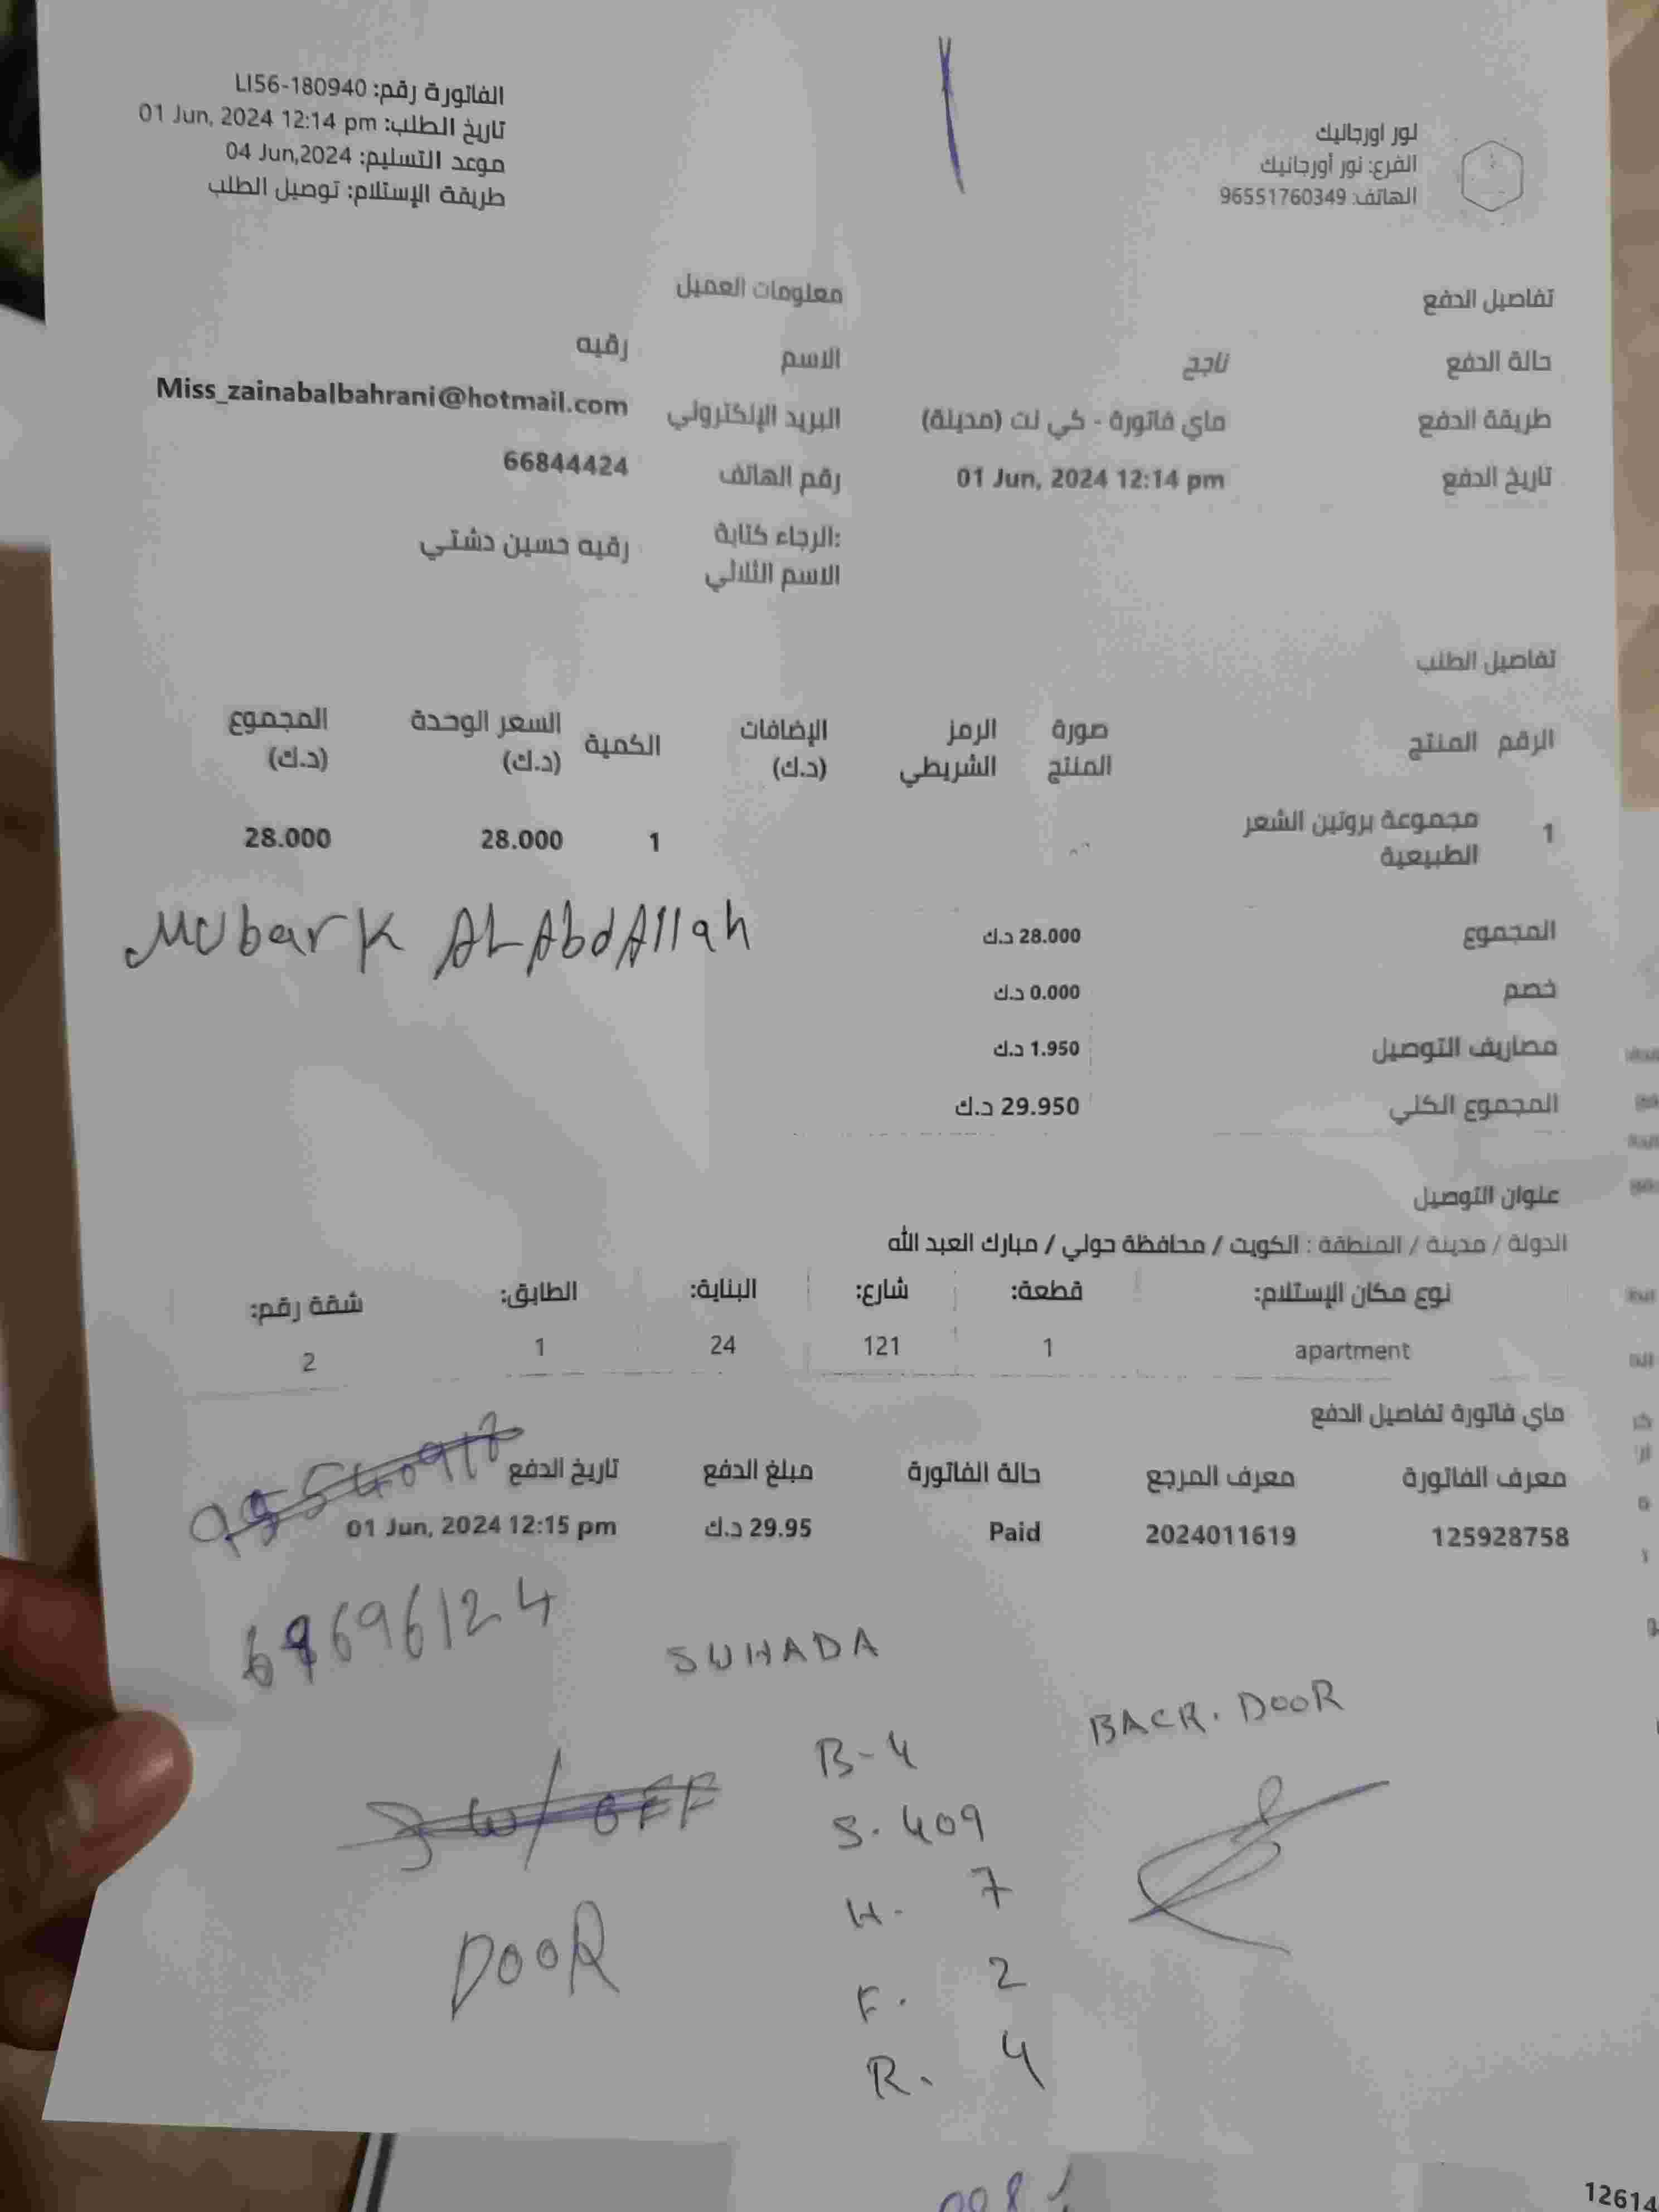 نور اورجانيك
الفرع: نور أورجانيك
الهاتف: 96551760349
الفاتورة رقم: LI56-180940
تاريخ الطلب: 01 Jun, 2024 12:14 pm
موعد التسليم: 04 Jun,2024
طريقة الإستلام: توصيل الطلب
تفاصيل الدفع
حالة الدفع ناجح
طريقة الدفع ماي فاتورة - كي نت (مدينة)
تاريخ الدفع 01 Jun, 2024 12:14 pm
معلومات العميل
الاسم رقيه
البريد الإلكتروني Miss_zainabalbahrani@hotmail.com
رقم الهاتف 66844424
الرجاء كتابة:
الاسم الثلاثي رقيه حسين دشتي
تفاصيل الطلب
الرقم المنتج صورة المنتج الرمز الشريطي الإضافات (د.ك) الكمية السعر الوحدة (د.ك) المجموع (د.ك)
1 مجموعة بروتين الشعر الطبيعية 1 28.000 28.000
المجموع 28.000 د.ك
Mubark AL AbdAllah
خصم 0.000 د.ك
مصاريف التوصيل 1.950 د.ك
المجموع الكلي 29.950 د.ك
عنوان التوصيل
الدولة / مدينة / المنطقة : الكويت / محافظة حولي / مبارك العبد الله
نوع مكان الإستلام: قطعة: شارع: البناية: الطابق: شقة رقم:
apartment 1 121 24 1 2
ماي فاتورة تفاصيل الدفع
معرف الفاتورة معرف المرجع حالة الفاتورة مبلغ الدفع تاريخ الدفع
125928758 2024011619 Paid 29.95 د.ك 01 Jun, 2024 12:15 pm
SUHADA
BACK. DOOR
B-4
S. 409
H. 7
F. 2
R. 4
DOOR
12614